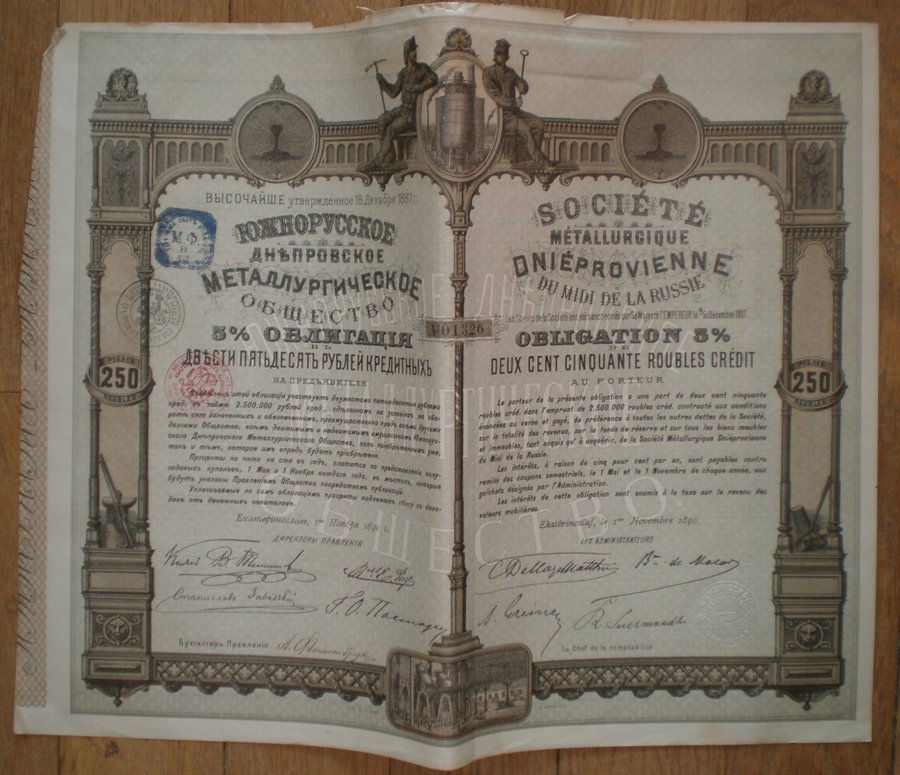 ВЫСОЧАЙШЕ утвержденное 18 Декабря 1887 г.
ЮЖНОРУССКОЕ
ДНѢПРОВСКОЕ
МЕТАЛЛУРГИЧЕСКОЕ
ОБЩЕСТВО
5% ОБЛИГАЦІЯ
ВЪ
ДВѢСТИ ПЯТЬДЕСЯТЪ РУБЛЕЙ КРЕДИТНЫХЪ
НА ПРЕДЪЯВИТЕЛЯ
этой облигаціи участвуетъ двумястами пятьюдесятью рублями
кред. въ займѣ 2.500.000 рублей кред., сдѣланномъ на условіяхъ на обо-
ротѣ сего означенныхъ и обезпеченномъ, преимущественно предъ всѣми другими
долгами Общества, всѣмъ движимымъ и недвижимымъ имуществомъ Южнорус-
скаго Днѣпровскаго Металлургическаго Общества, какъ пріобрѣтеннымъ уже,
такъ и тѣмъ, которое имъ впредь будетъ пріобрѣтено.
Проценты по пяти на сто въ годъ, платятся по представленіи полу-
годовыхъ купоновъ, 1 Мая и 1 Ноября каждаго года, въ мѣстахъ, которыя
будутъ указаны Правленіемъ Общества посредствомъ публикацій.
Уплачиваемые по симъ облигаціямъ проценты подлежатъ сбору съ дохо-
довъ отъ денежныхъ капиталовъ.
Екатеринославъ, 1го Ноября 1890 г.
ДИРЕКТОРЫ ПРАВЛЕНІЯ
Станиславъ
Бухгалтеръ Правленія
М.Ф.
250
РУБЛЕЙ
№01326
SOCIÉTÉ
MÉTALLURGIQUE
DNIÉPROVIENNE
DU MIDI DE LA RUSSIE
Les Statuts de la Société ont été sanctionnés par Sa Majesté l'EMPEREUR le 18/30 Décembre 1887.
OBLIGATION 5%
DE
DEUX CENT CINQUANTE ROUBLES CRÉDIT
AU PORTEUR
Le porteur de la présente obligation a une part de deux cent cinquante
roubles créd. dans l'emprunt de 2.500.000 roubles créd. contracté aux conditions
énoncées au verso et gagé, de préférence à toutes les autres dettes de la Société,
sur la totalité des revenus, sur le fonds de réserve et sur tous les biens meubles
et immeubles, tant acquis qu' à acquérir, de la Société Métallurgique Dniéprovienne
du Midi de la Russie.
Les intérêts, à raison de cinq pour cent par an, sont payables contre
remise des coupons semestriels, le 1 Mai et le 1 Novembre de chaque année, aux
guichets désignés par l'Administration.
Les intérêts de cette obligation sont soumis à la taxe sur le revenu des
valeurs mobilières.
Ekatérinoslaf, le 1er Novembre 1890.
LES ADMINISTRATEURS
Bon de Macar
Le Chef de la comptabilité
250
ROUBLES